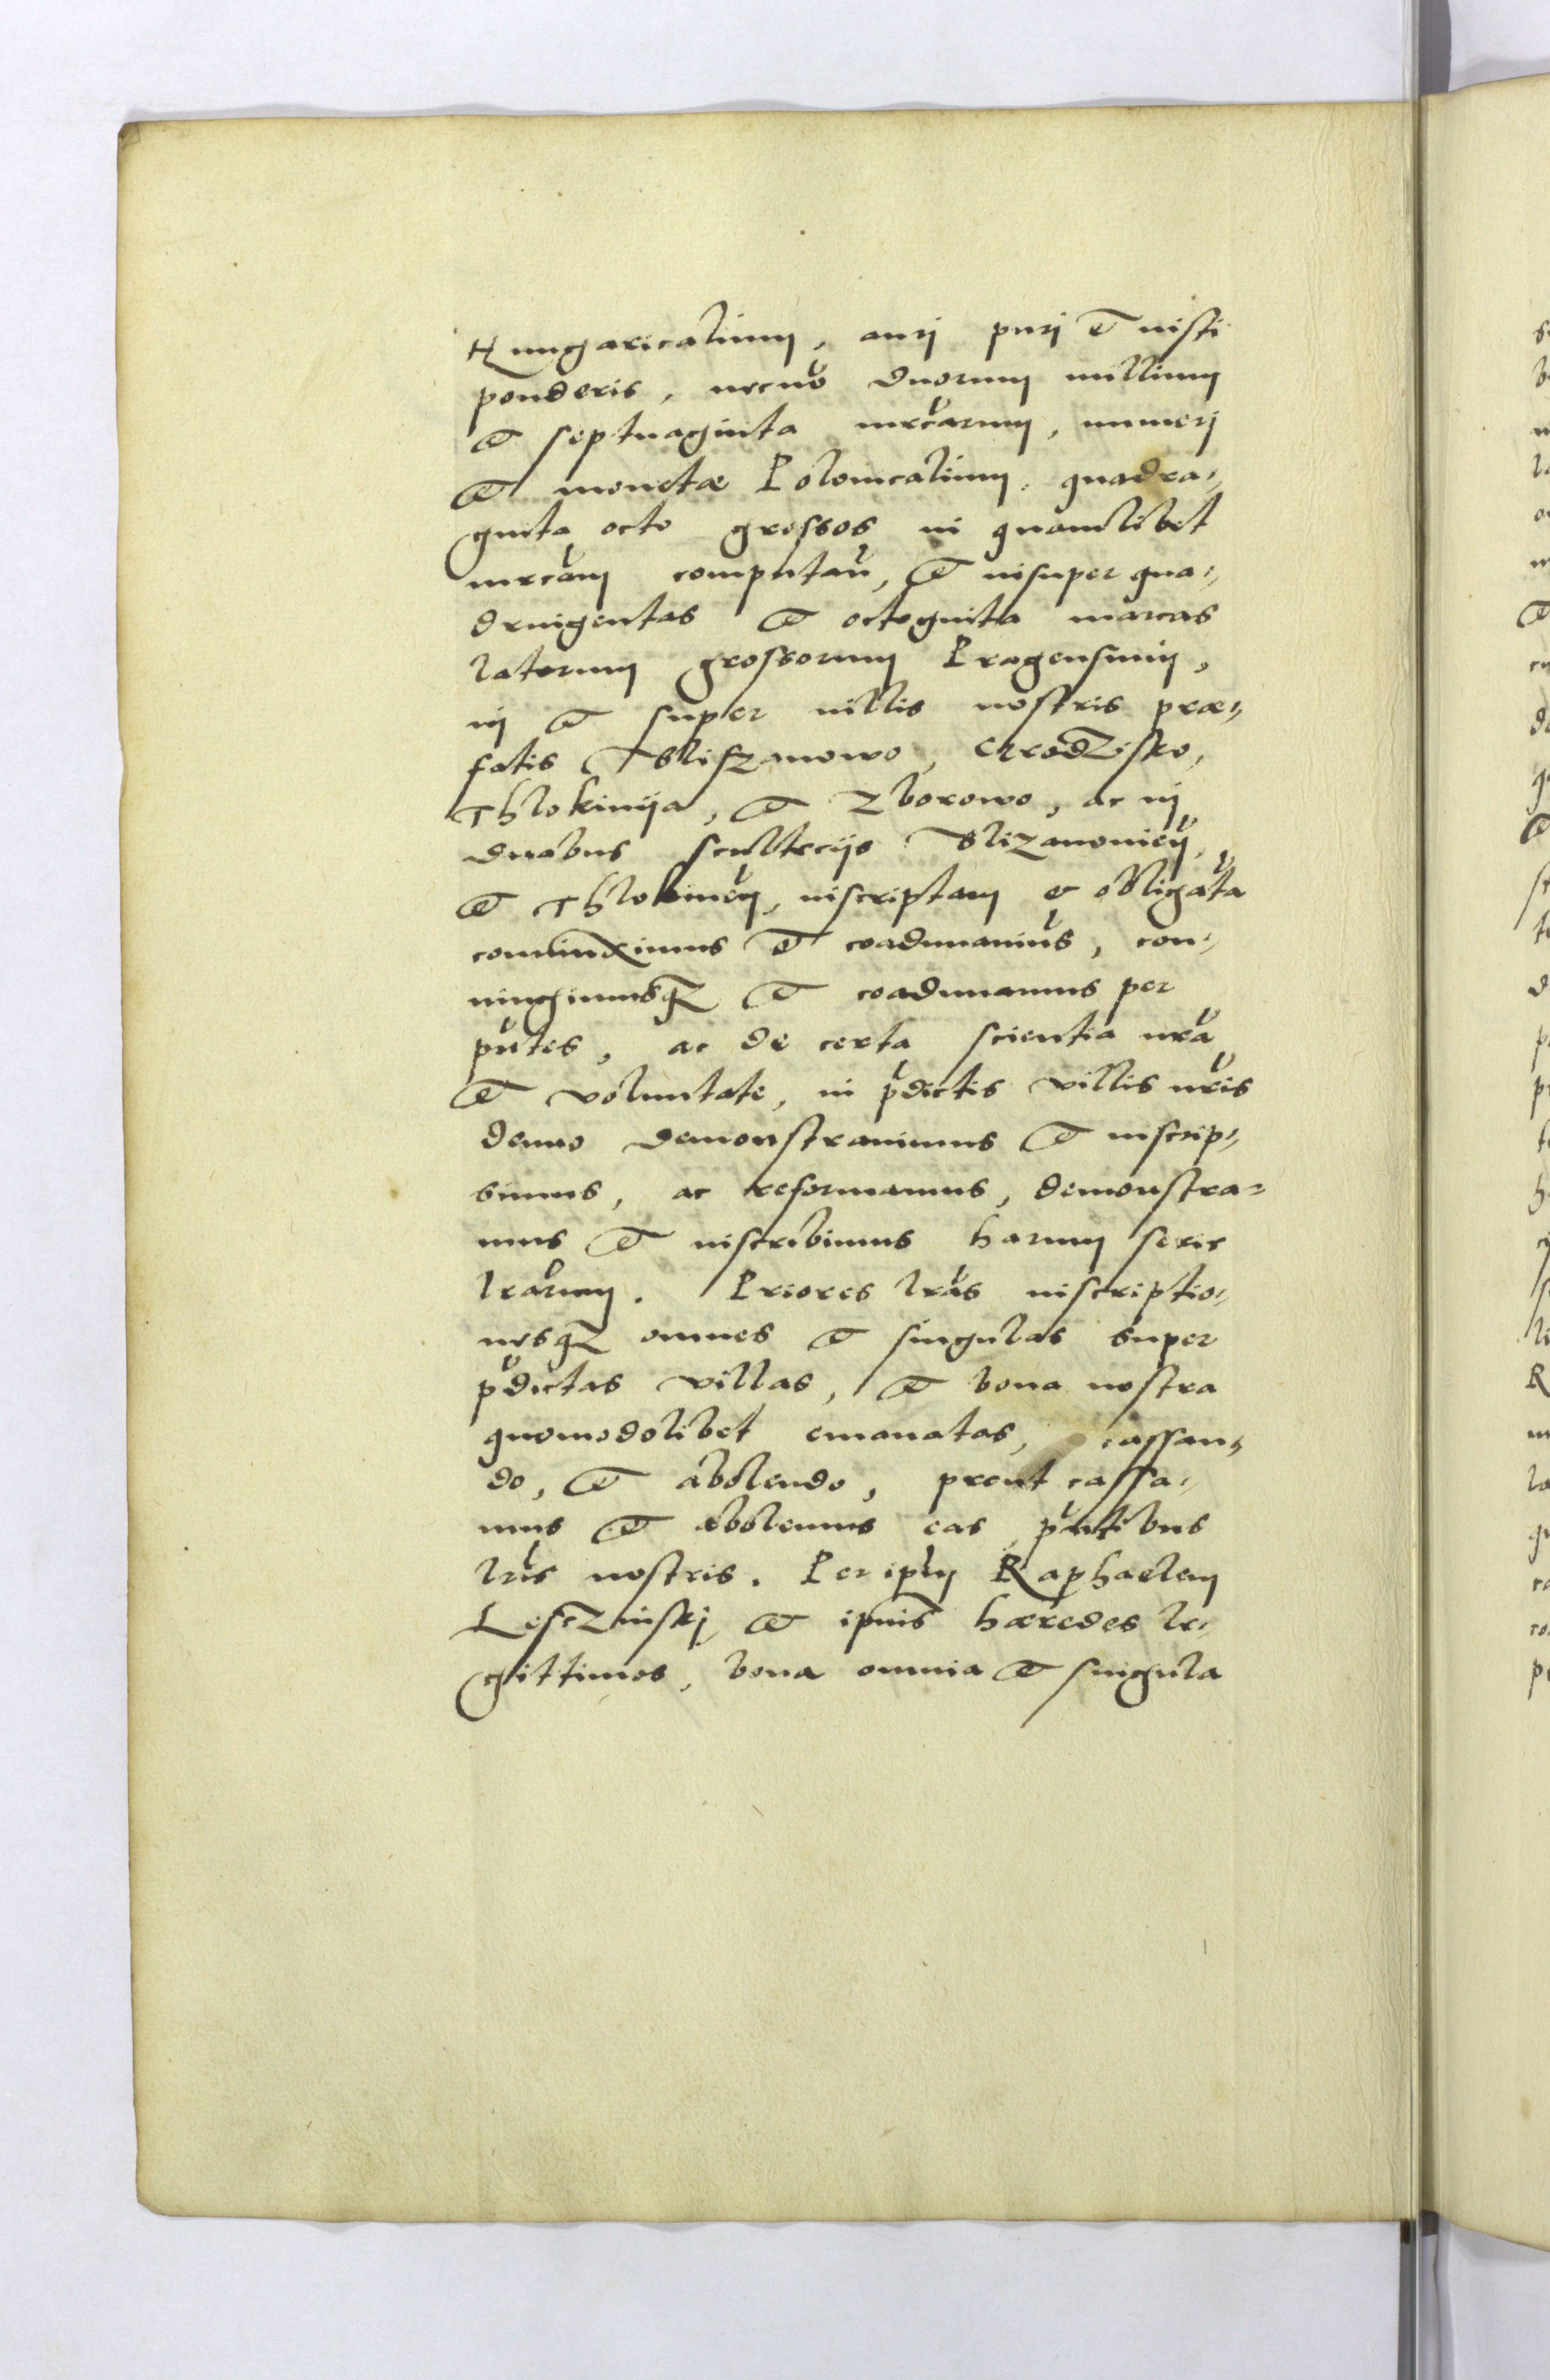 Hungaricalium, auri puri et iusti
ponderis, necnō duorum millium
et septuaginta mrcarum, numeri
et monetæ Polonicalium, quadra-
ginta octo grossos in quamlibet
mrcam computan, et insuper qua-
dringentas et octoginta marcas
latorum grossorum Pragensium,
in et super villis nostris præ-
fatis Bliszanowo, Grodzisko,
Thlokinija, et Zborowo, ac in
duabus scultecijs Blizanowien,
et Thlokinen, inscriptam et obligata
coniunximus et coadunauims, con-
iungimusqz et coadunamus per
pñtes, ac de certa scientia nra
et voluntate, in pdictis villis nris
denuo demonstrauimus et inscrip-
simus, ac reformamus, demonstra-
mus et inscribimus harum serie
lrarum. Priores lras inscriptio-
nesqz omnes et singulas super
pdictas villas, et bona nostra
quomodolibet emanatas, cassan-
do, et abolendo, prout cassa-
mus et abolemus eas pñtibus
lris nostris. Per ipm Raphaelem
Lesczinskj et ipius hæredes le-
gittimos, bona omnia et singula